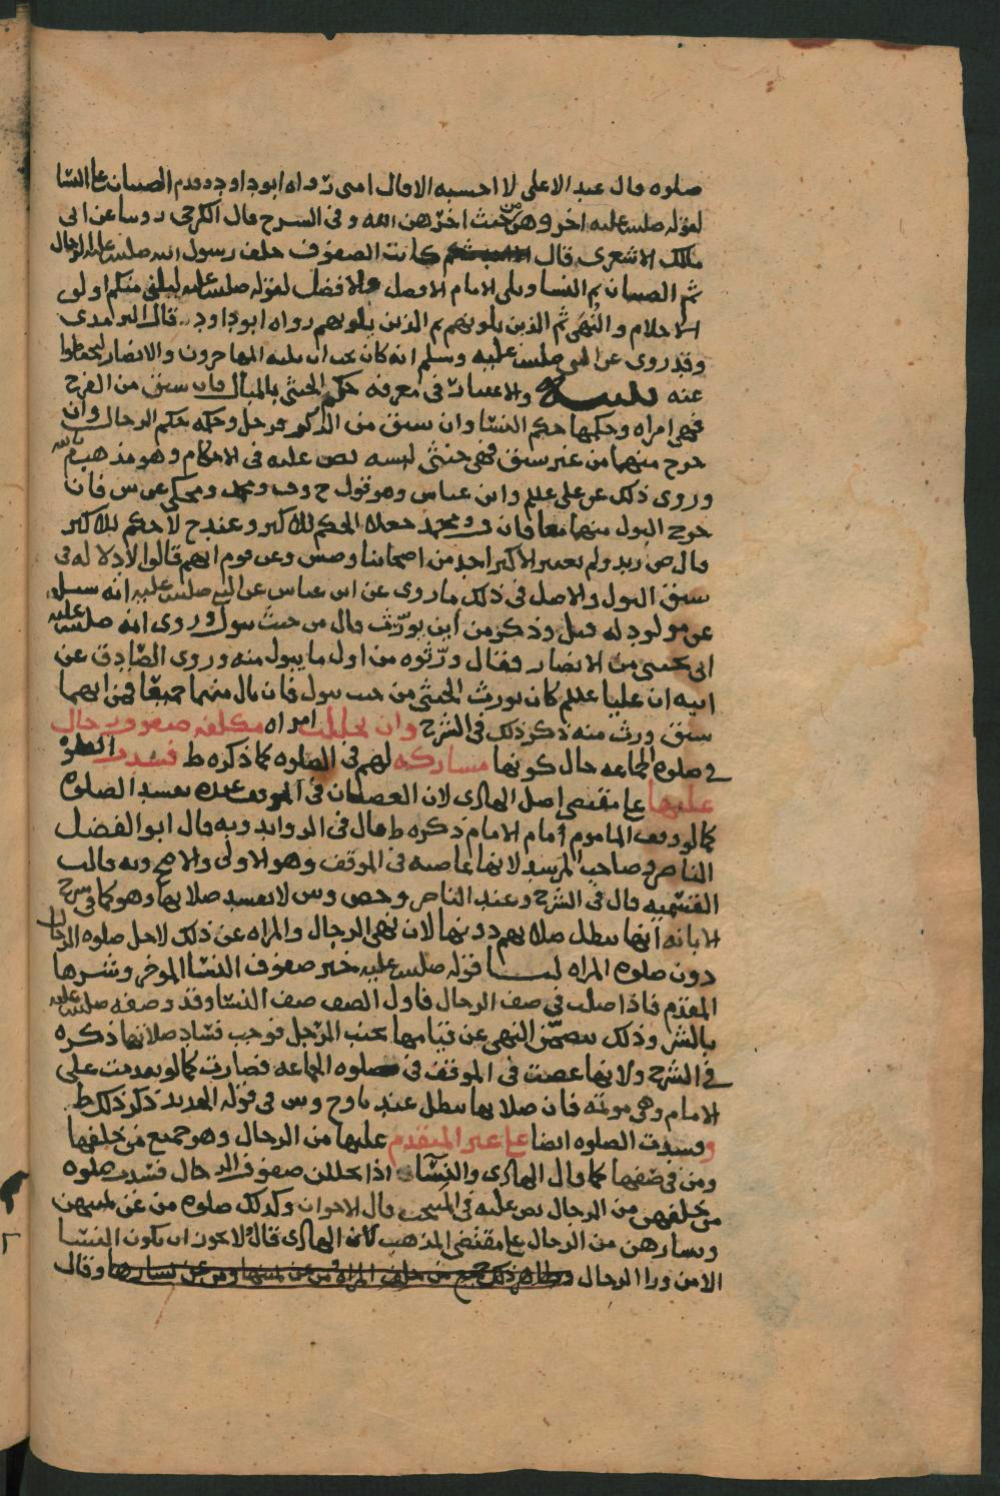 صلوه قال عبد الاعلى لا احسبه الا قال امتي رواه ابو داود وقدم الصبيان على النسا
لقوله صلى الله عليه اخروهن من حيث اخرهن الله وفي الشرح قال الكرخي روينا عن ابي
ملك الاشعري قال كانت الصفوف خلف رسول الله صلى الله عليه الرجال
ثم الصبيان ثم النسا ويلي الامام الافضل فالافضل لقوله صلى الله عليه ليلني منكم اولو
الاحلام والنهى ثم الذين يلونهم ثم الذين يلونهم رواه ابو داود قال الترمذي
وقد روي عن النبي صلى الله عليه وسلم انه كان يحب ان يليه المهاجرون والانصار ليحفظوا
عنه تنبيه والاعتبار في معرفة حكم الخنثى بالمبال فان سبق من الفرج
فهي امراه وحكمها حكم النسا وان سبق من الذكر فرجل وحكمه حكم الرجال وان
خرج منهما من غير سبق فهي خنثى لبسه نص عليه في الاحكام وهو مذهب
وروي ذلك عن علي علم وابن عباس وهو قول ح وف ومحمد ويحكى عن ش فان
خرج البول منهما معا فان ف ومحمد جعلا الحكم للاكثر وعند ح لا حكم للاكثر
قال ص زيد ولم يعتبر الاكثر احد من اصحابنا وص ش وعن قوم انهم قالوا لا دلاله في
سبق البول والاصل في ذلك ما روي عن ابن عباس عن النبي صلى الله عليه انه سيل
عن مولود له قبل وذكر من اين يورث قال من حيث يبول وروي انه صلى الله عليه
اتي بخنثى من الانصار فقال ورثوه من اول ما يبول منه وروى الصادق عن
ابيه ان عليا علم كان يورث الخنثى من حيث يبول فان بال منهما جميعا فمن ايهما
سبق ورث منه ذكر ذلك في الشرح وان تخللت امراه مكلفه صفوف رجال
في صلوه الجماعه حال كونها مشاركه لهم في الصلوه كما ذكره ط فسدت الصلوه
عليها على مقتضى اصل الهادي لان العصيان في الموقف عنده يفسد الصلوه
كما لو وقف الماموم امام الامام ذكره ط قال في الزوايد وبه قال ابو الفضل
الناصر وصاحب المرشد لانها عاصيه في الموقف وهو الاولى والاصح وبه قالت
القسميه قال في الشرح وعند الناصر وح ص وش لا يفسد صلاتها وهو كما في شرح
الابانه انها تبطل صلاتهم دونها لان نهي الرجال والمراه عن ذلك لاجل صلوه الرجال
دون صلوه المراه لنا قوله صلى الله عليه خير صفوف النسا الموخر وشرها
المقدم فاذا صلت في صف الرجال فاول الصف صف النسا وقد وصفه صلى الله عليه
بالشر وذلك يتضمن النهي عن قيامها بجنب الرجل فوجب فساد صلاتها ذكره
في الشرح ولانها عصت في الموقف في صلوه الجماعه فصارت كما لو تقدمت على
الامام وهي موتمه فان صلاتها تبطل عندنا وح وش في قوله الجديد ذكر ذلك ط
وفسدت الصلوه ايضا على غير المتقدم عليها من الرجال وهو جميع من خلفها
ومن في صفها كما قال الهادي والنسا اذا تخللن صفوف الرجال فسدت صلوه
من خلفهن من الرجال نص عليه في المنتخب قال الاخوان وكذلك صلوه من عن يمينهن
ويسارهن من الرجال على مقتضى المذهب لانه الهادي قال ولا يجوز ان يكون النسا
الا من ورا الرجال وظاهر ذلك جميع من خلف المراه ومن عن يمينها ومن عن يسارها وقال